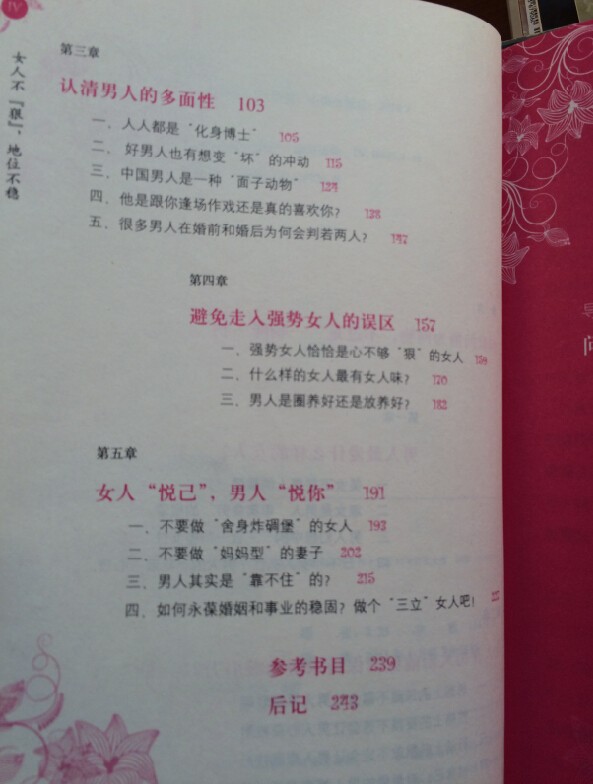 IV
女人不“狠”，地位不稳
第三章
认清男人的多面性 103
一、人人都是“化身博士” 105
二、好男人也有想变“坏”的冲动 115
三、中国男人是一种“面子动物” 124
四、他是跟你逢场作戏还是真的喜欢你？ 138
五、很多男人在婚前和婚后为何会判若两人？ 147
第四章
避免走入强势女人的误区 157
一、强势女人恰恰是心不够“狠”的女人 159
二、什么样的女人最有女人味？ 170
三、男人是圈养好还是放养好？ 182
第五章
女人“悦己”，男人“悦你” 191
一、不要做“舍身炸碉堡”的女人 193
二、不要做“妈妈型”的妻子 202
三、男人其实是“靠不住”的？ 215
四、如何永葆婚姻和事业的稳固？做个“三立”女人吧！
参考书目 239
后记 243
问